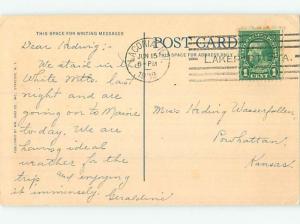 THIS SPACE FOR WRITING MESSAGES
POST CARD
THIS SPACE FOR ADDRESS ONLY
LACONIA
JUN 15
6-PM
LAKEPORT STA.
1 CENT 1
Dear Hedwig:-
We staid in the
White Mts. last
night and are
going on to Maine
to-day. We are
having ideal
weather for the
trip and enjoying
it immensely.
Geraldine
Miss Hedwig Wasserfallen
Powhattan,
Kansas.